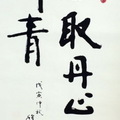 取丹心
青
戊寅仲秋